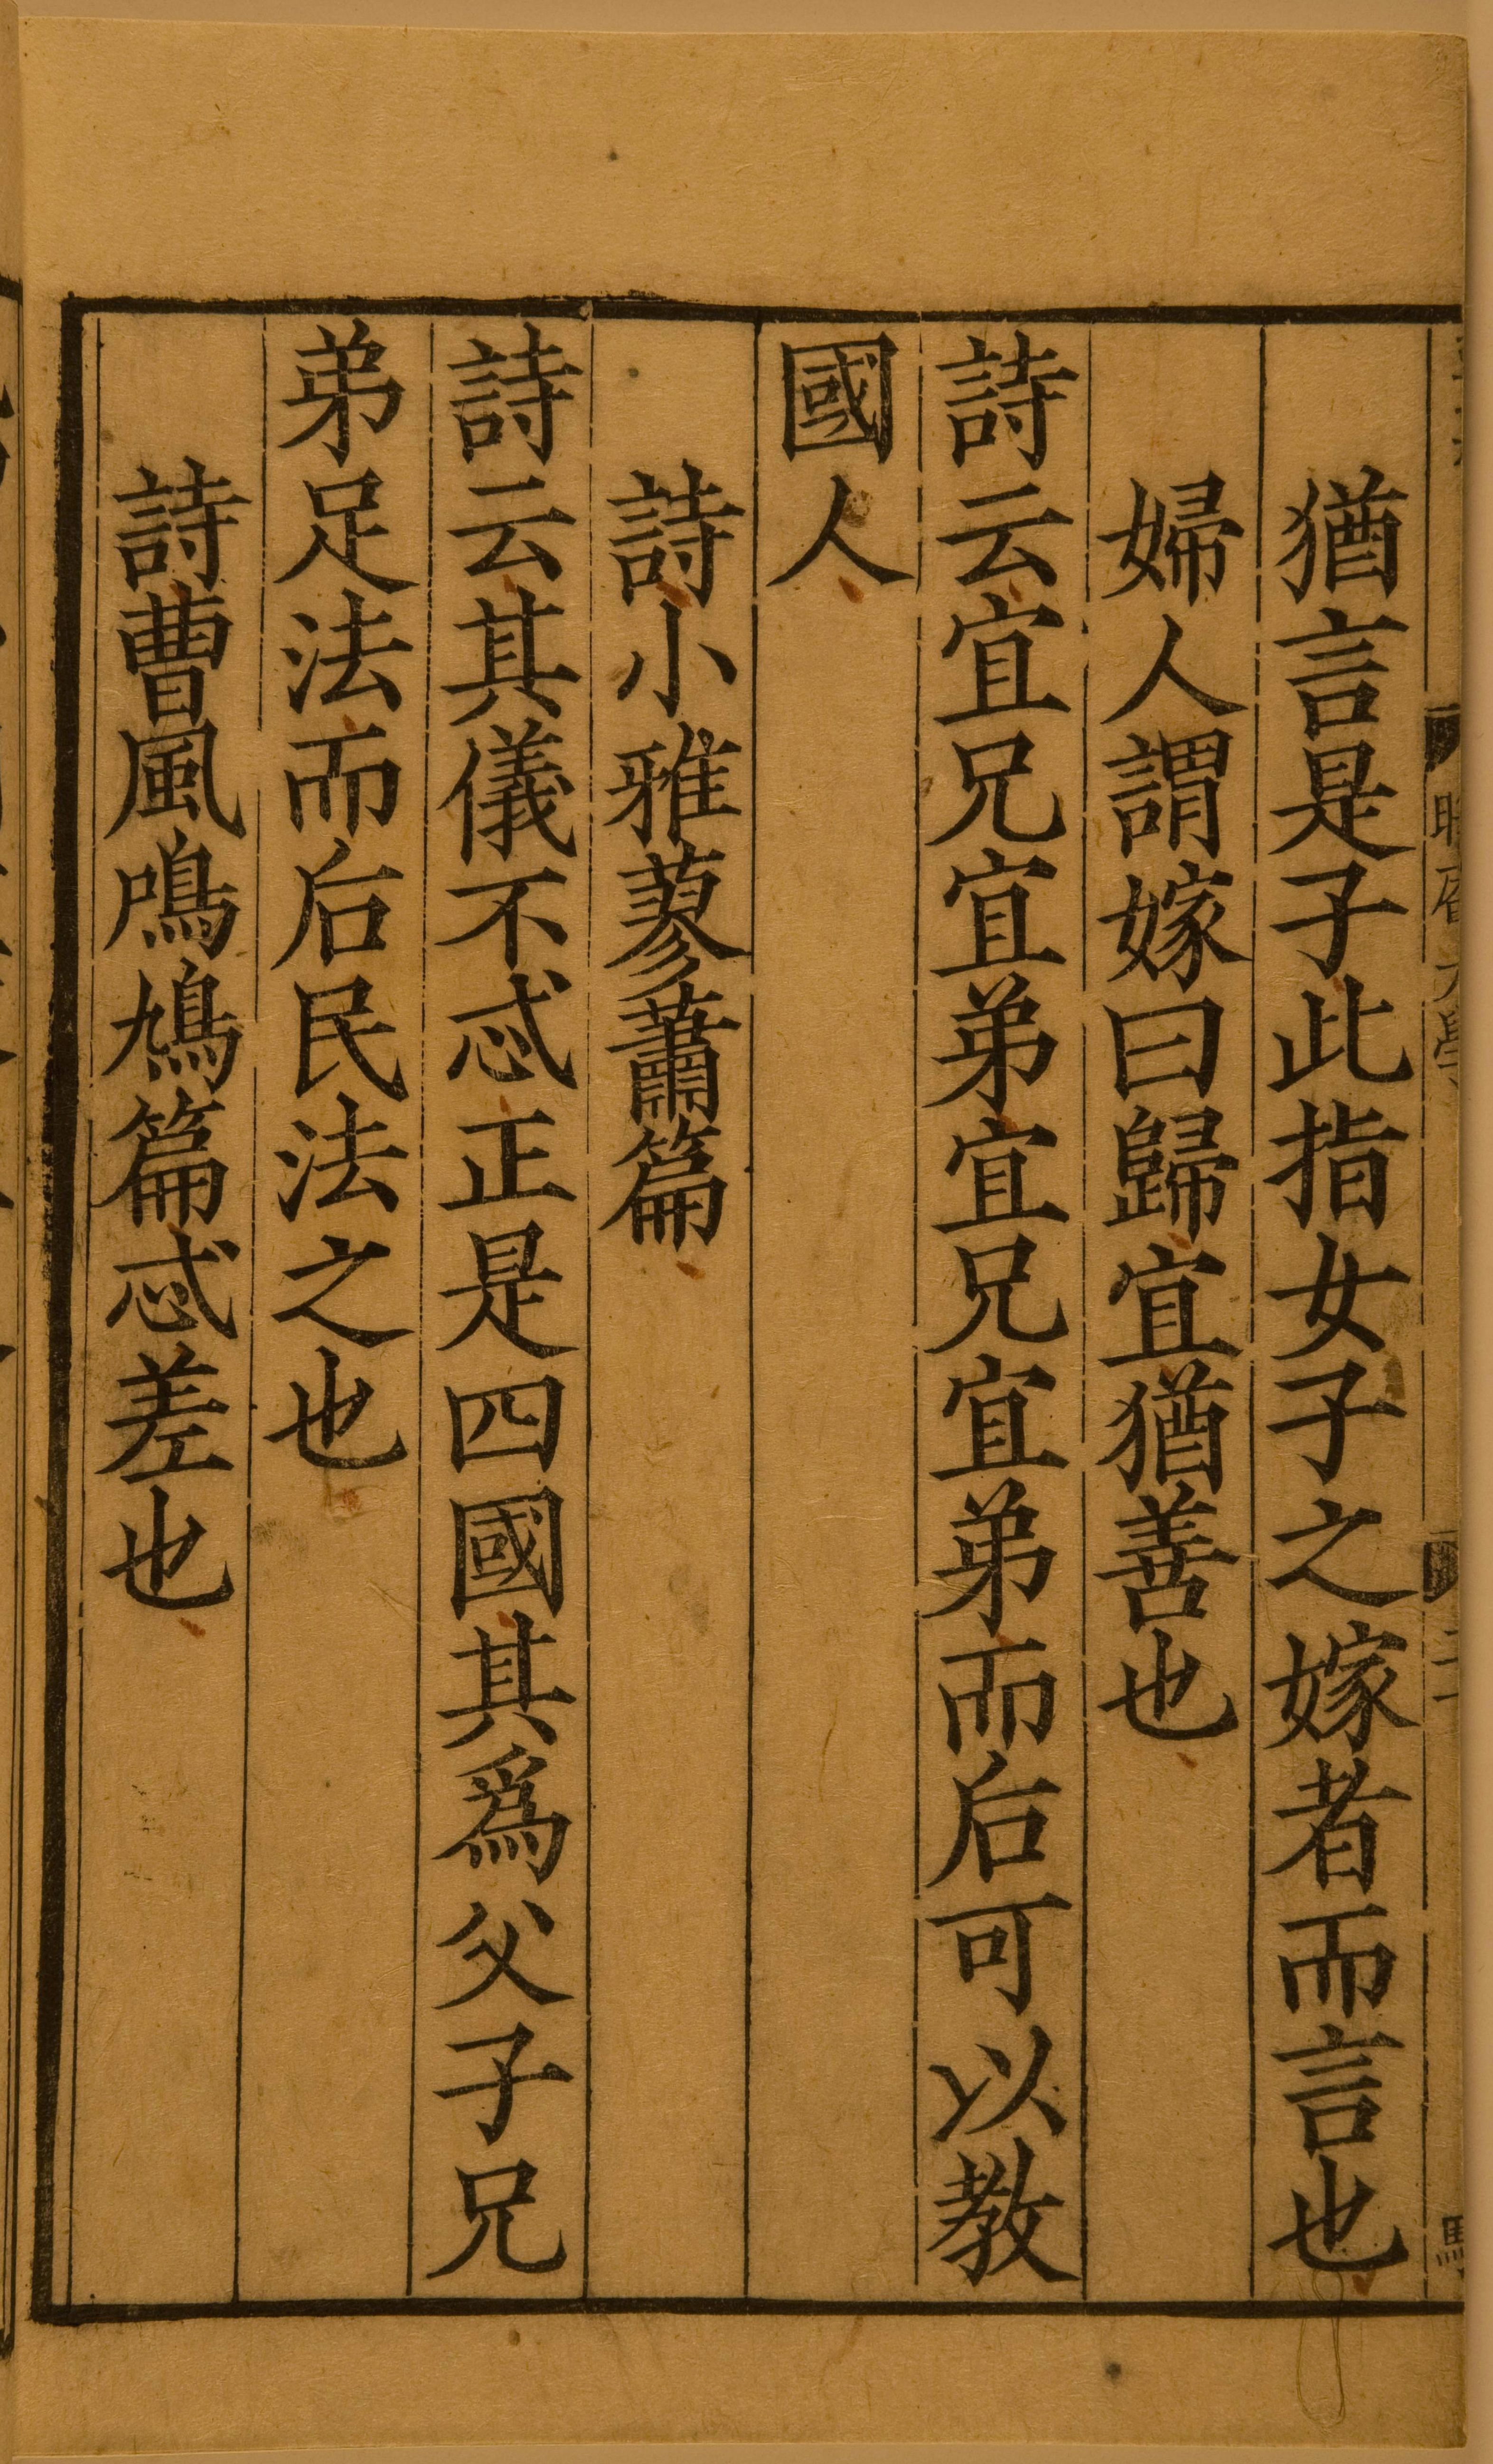 猶言是子此指女子之嫁者而言也
婦人謂嫁曰歸宜猶善也
詩云宜兄宜弟宜兄宜弟而后可以教
國人
詩小雅蓼蕭篇
詩云其儀不忒正是四國其爲父子兄
弟足法而后民法之也
詩曹風鳲鳩篇忒差也